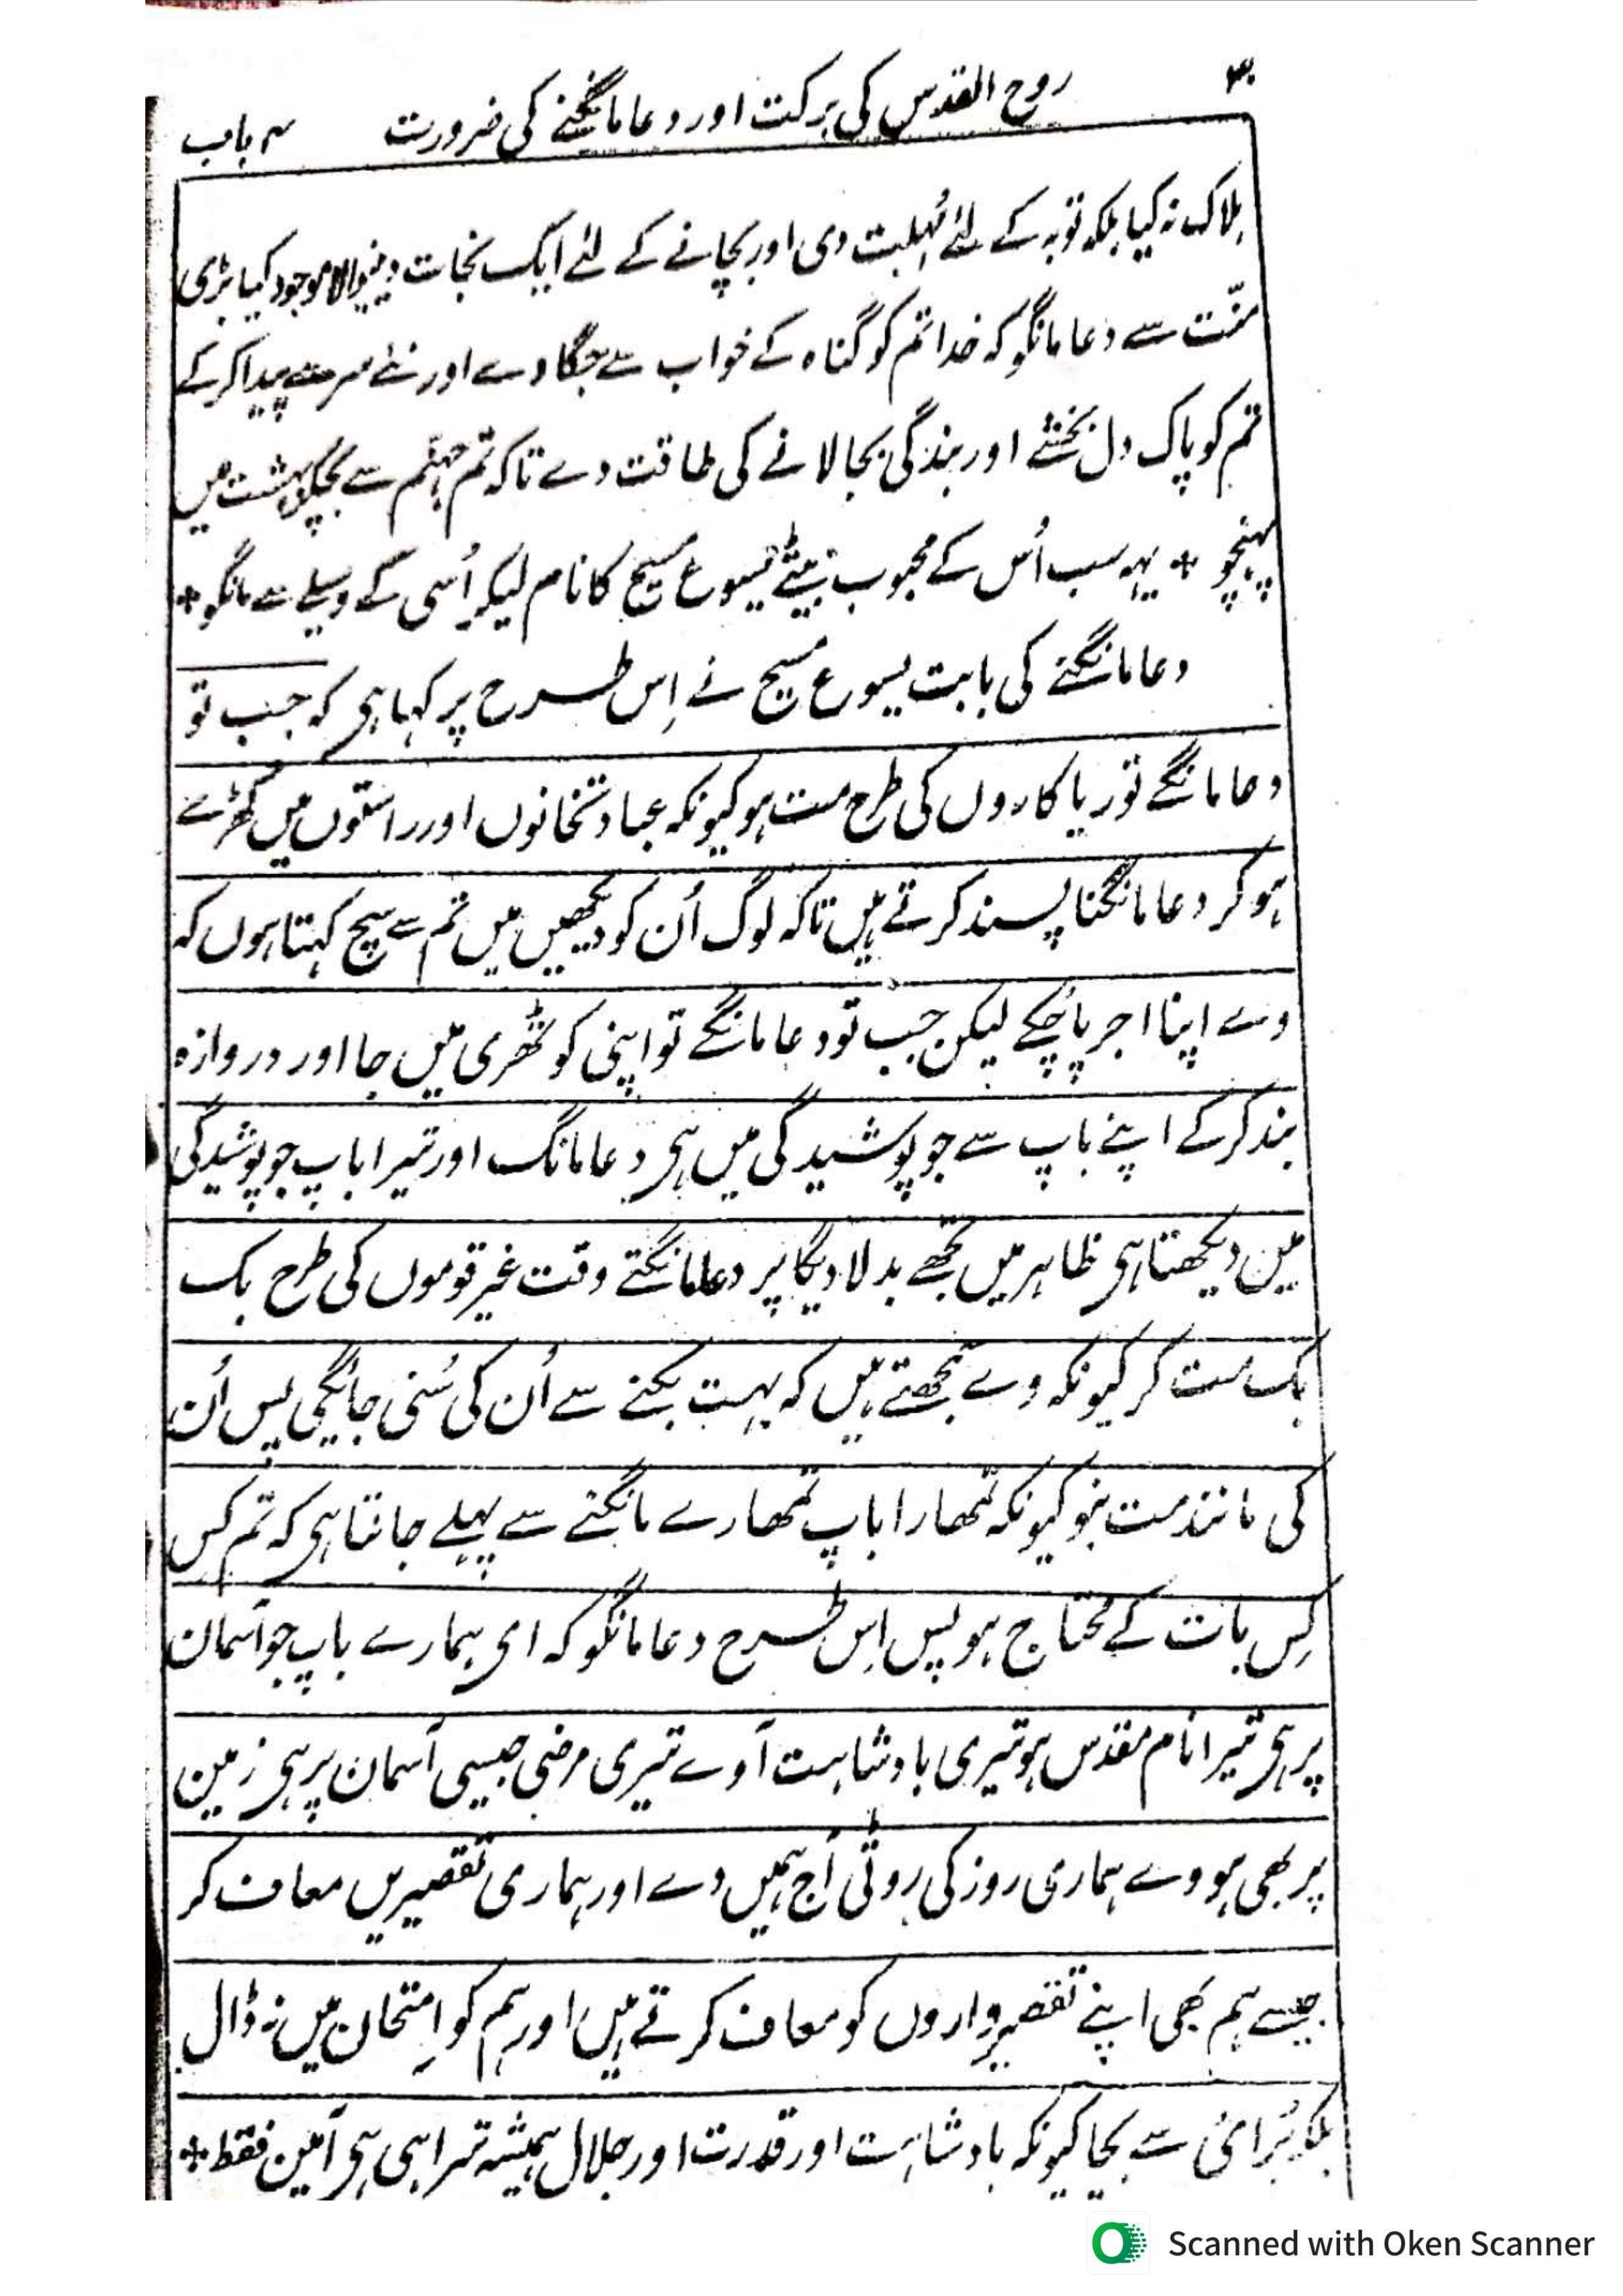 ۳۰ روح القدس کی برکت اور دعا مانگنے کی ضرورت ۳ باب
ہلاک نہ کیا بلکہ توبہ کے لئے مُہلت دی اور بچانے کے لئے ایک نجات دینیوالا موجود کیا بڑی
منّت سے دعا مانگو کہ خدا تم کو گناہ کے خواب سے جگا دے اور نئے سر سے پیدا کر کے
تم کو پاک دل بخشے اور بندگی بجا لانے کی طاقت دے تاکہ تم جہنّم سے بچکر بہشت میں
پہنچو * یہہ سب اُس کے محبوب بیٹے یسوع مسیح کا نام لیکر اُسی کے وسیلے سے مانگو *
دعا مانگنے کی بابت یسوع مسیح نے اِس طرح پر کہا ہی کہ جب تو
دعا مانگے تو ریاکاروں کی طرح مت ہو کیونکہ عبادتخانوں اور راستوں میں کھڑے
ہو کر دعا مانگنا پسند کرتے ہیں تاکہ لوگ اُن کو دیکھیں میں تم سے سچ کہتا ہوں کہ
وے اپنا اجر پا چُکے لیکن جب تو دعا مانگے تو اپنی کوٹھری میں جا اور دروازہ
بند کر کے اپنے باپ سے جو پوشیدگی میں ہی دعا مانگ اور تیرا باپ جو پوشیدگی
میں دیکھتا ہی ظاہر میں تجھے بدلا دیگا پر دعا مانگتے وقت غیر قوموں کی طرح بک
بک مت کر کیونکہ وے سمجھتے ہیں کہ بہت بکنے سے اُن کی سُنی جائیگی پس اُن
کی مانند مت بنو کیونکہ تمھارا باپ تمھارے مانگنے سے پہلے جانتا ہی کہ تُم کس
کِس بات کے محتاج ہو پس اِس طرح دعا مانگو کہ ای ہمارے باپ جو آسمان
پر ہی تیرا نام مقدس ہو تیری بادشاہت آوے تیری مرضی جیسی آسمان پر ہی زمین
پر بھی ہووے ہماری روز کی روٹی آج ہمیں دے اور ہماری تقصیریں معاف کر
جیسے ہم بھی اپنے تقصیرواروں کو معاف کرتے ہیں اور ہم کو اِمتحان میں نہ ڈال
بلکہ بُرائی سے بچا کیونکہ بادشاہت اور قدرت اور جلال ہمیشہ تیرا ہی ہی آمین فقط *
Scanned with Oken Scanner